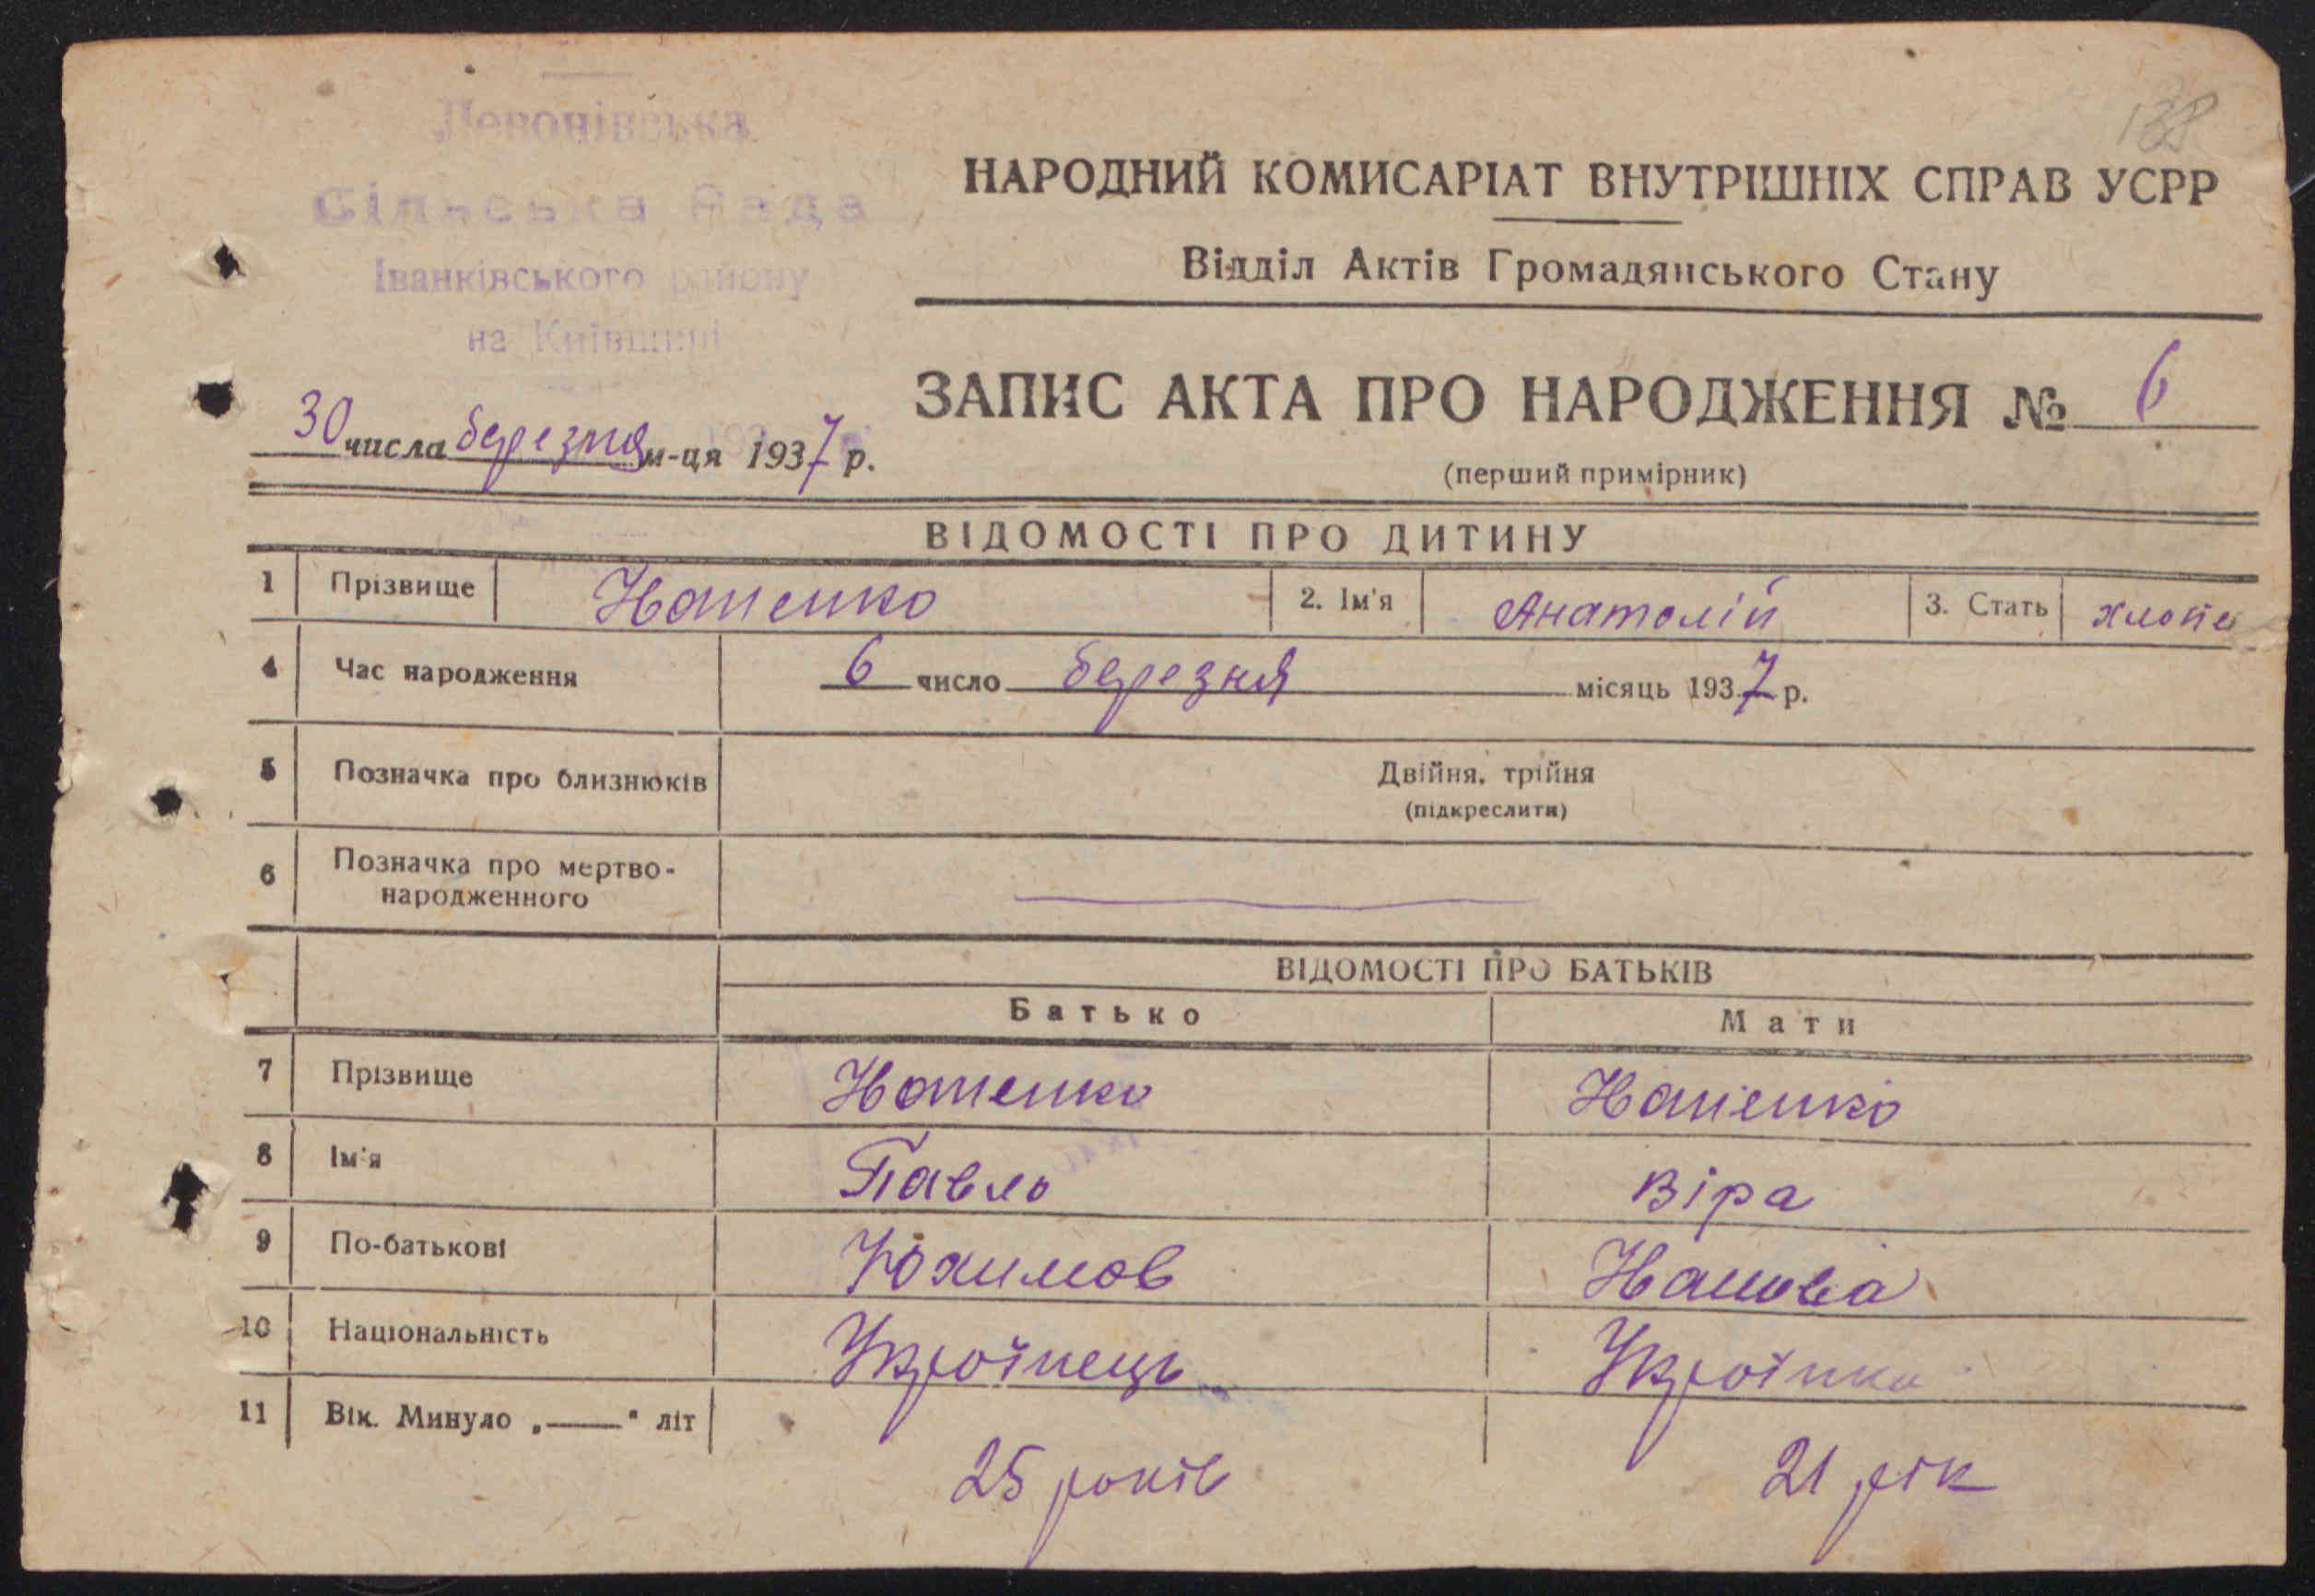 138
Левонівська
Сільська Рада
Іванківського району
на Київщині
НАРОДНИЙ КОМИСАРІАТ ВНУТРІШНІХ СПРАВ УСРР
Відділ Актів Громадянського Стану
ЗАПИС АКТА ПРО НАРОДЖЕННЯ № 6
30 числа березня м-ця 1937 р.
(перший примірник)
ВІДОМОСТІ ПРО ДИТИНУ
1 Прізвище Натенко 2. Ім'я Анатолій 3. Стать хлопе
4 Час народження 6 число березня місяць 1937 р.
5 Позначка про близнюків Двійня, трійня
(підкреслити)
6 Позначка про мертво-
народженного
ВІДОМОСТІ ПРО БАТЬКІВ
Батько Мати
7 Прізвище Натенко Натенко
8 Ім'я Павло Віра
9 По-батькові Юхимов
10 Національність Українець Українка
11 Вік. Минуло „——" літ 25 років 21 рік